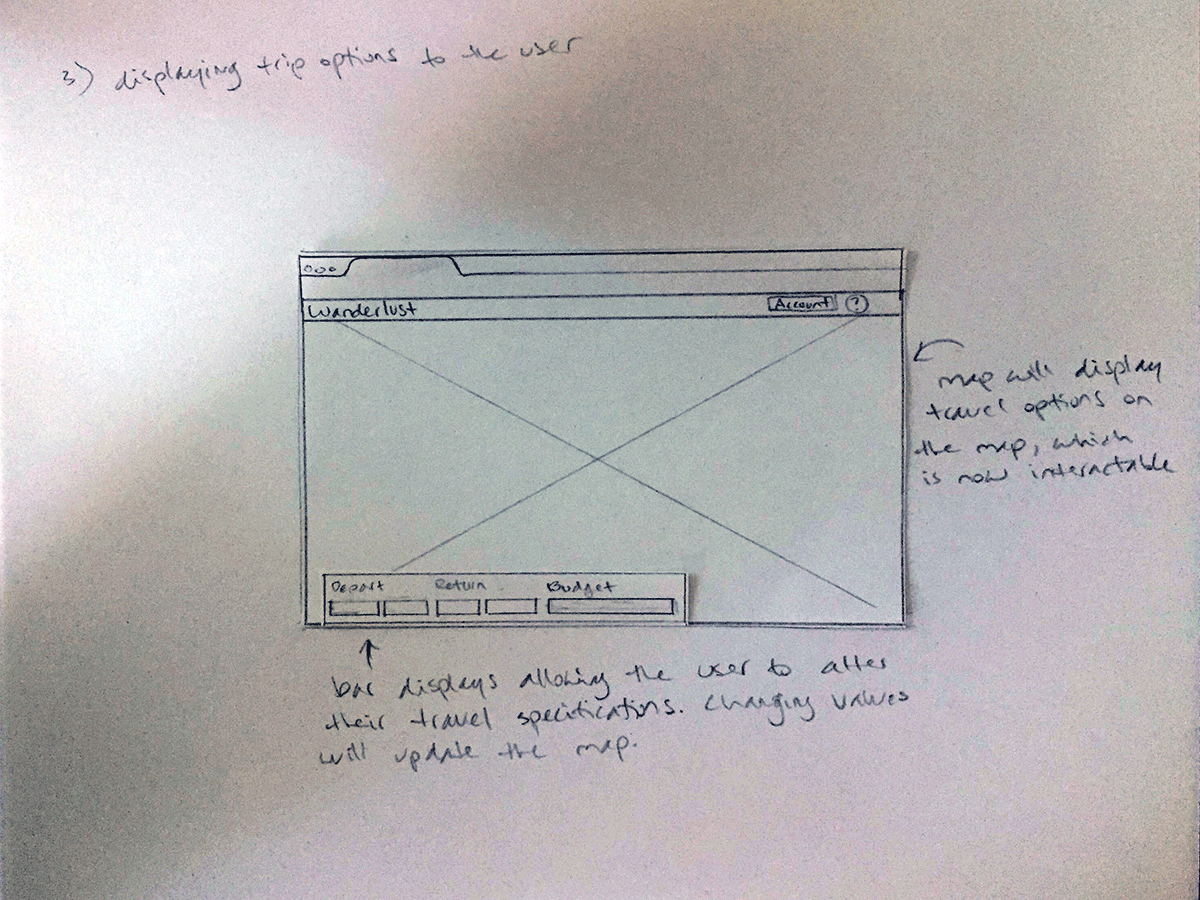 3) displaying trip options to the user
Wanderlust
Account
?
map will display
travel options on
the map, which
is now interactable
Depart
Return
Budget
bar displays allowing the user to alter
their travel specifications. Changing values
will update the map.